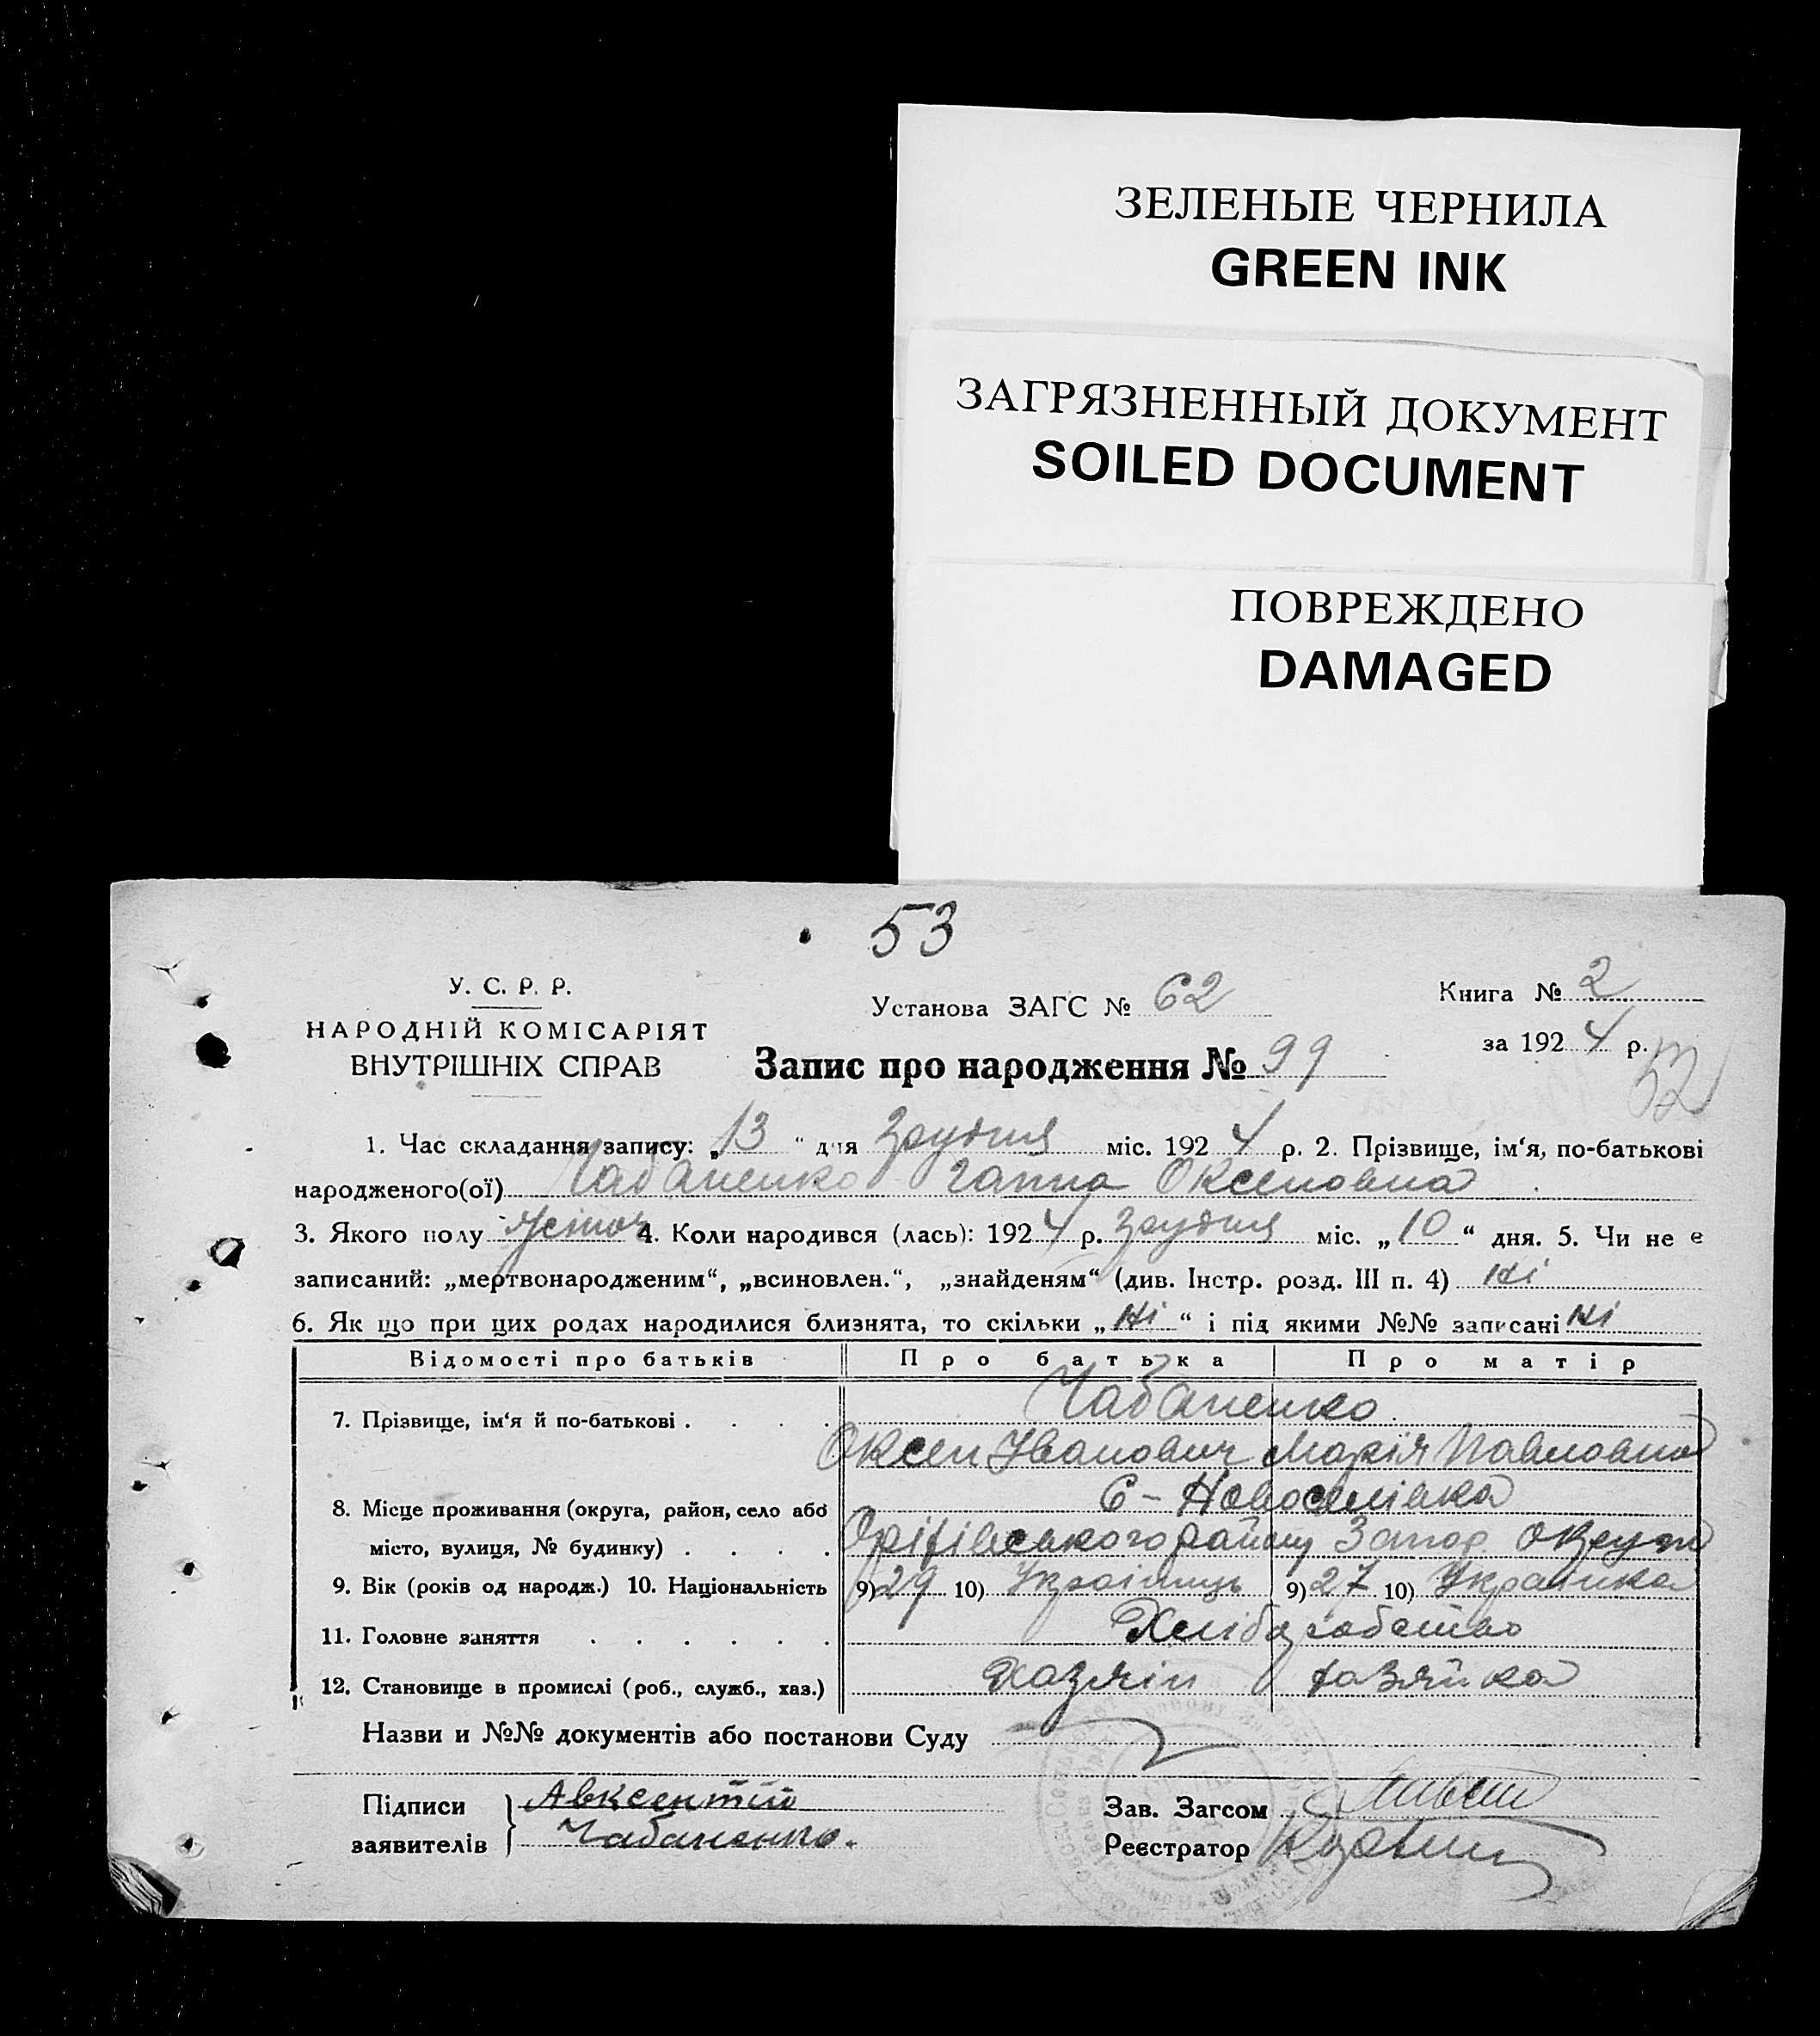 ЗЕЛЕНЫЕ ЧЕРНИЛА
GREEN INK
ЗАГРЯЗНЕННЫЙ ДОКУМЕНТ
SOILED DOCUMENT
ПОВРЕЖДЕНО
DAMAGED
53
У. С. Р. Р.
НАРОДНІЙ КОМІСАРІЯТ
ВНУТРІШНІХ СПРАВ
Установа ЗАГС № 62
Книга № 2
за 1924 р.
52
Запис про народження № 99
1. Час складання запису: „13“ дня Грудня міс. 1924 р. 2. Прізвище, ім‘я, по-батькові
народженого(ої) Чабаненко Ганна Оксеновна
3. Якого полу Жіноч 4. Коли народився (лась): 1924 р. Грудня міс. „10“ дня. 5. Чи не є
записаний: „мертвонародженим“, „всиновлен.“, „знайденям“ (див. Інстр. розд. III п. 4) Ні
6. Як що при цих родах народилися близнята, то скільки „Ні“ і під якими №№ записані Ні
Відомості про батьків Про батька Про матір
7. Прізвище, ім‘я й по-батькові . . . . Чабаненко
Оксен Іванович Марія Павловна
8. Місце проживання (округа, район, село або С-Новоселівка
місто, вулиця, № будинку) . . . . Оріхівського району Запор. округи
9. Вік (років од народж.) 10. Національність 9) 29 10) Українець 9) 27 10) Українка
11. Головне заняття . . . . . . Хліборобство
12. Становище в промислі (роб., служб., хаз.) Хазяін Хазяйка
Назви и №№ документів або постанови Суду
Підписи Авксентій
заявителів Чабаненко.
Зав. Загсом
Реєстратор